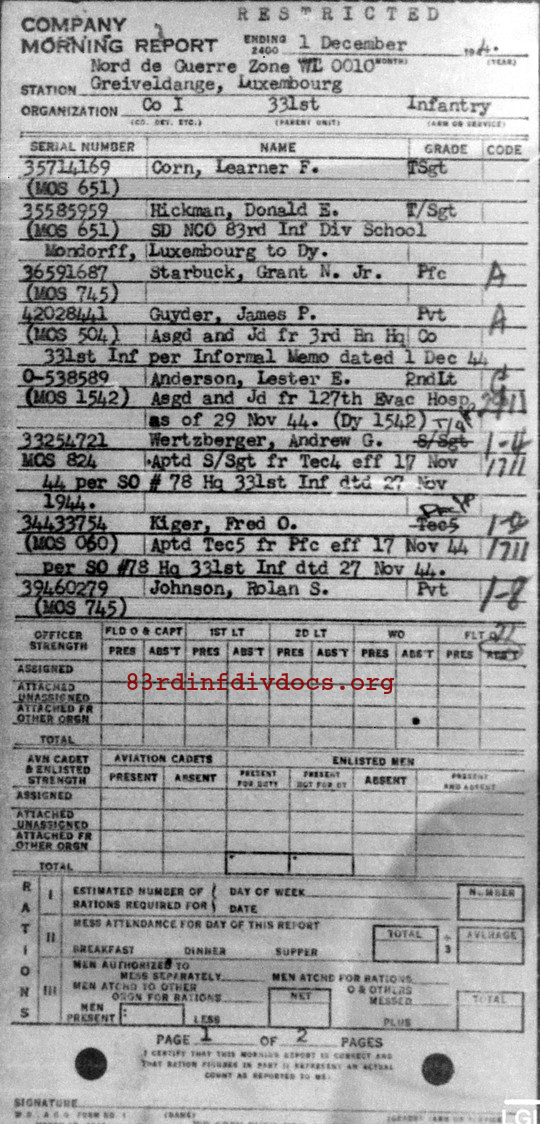 RESTRICTED
COMPANY
MORNING REPORT ENDING 2400 1 December 194 4.
(MONTH) (YEAR)
Nord de Guerre Zone WL 0010
STATION Greiveldange, Luxembourg
ORGANIZATION Co I 331st Infantry
(CO. DET. ETC.) (PARENT UNIT) (ARM OR SERVICE)
SERIAL NUMBER NAME GRADE CODE
35714169 Corn, Learner F. TSgt
(MOS 651)
35585959 Hickman, Donald E. T/Sgt
(MOS 651) SD NCO 83rd Inf Div School
Mondorff, Luxembourg to Dy.
36591687 Starbuck, Grant N. Jr. Pfc A
(MOS 745)
42028441 Guyder, James P. Pvt A
(MOS 504) Asgd and Jd fr 3rd Bn Hq Co
331st Inf per Informal Memo dated 1 Dec 44
O-538589 Anderson, Lester E. 2ndLt
(MOS 1542) Asgd and Jd fr 127th Evac Hosp
as of 29 Nov 44. (Dy 1542)
33254721 Wertzberger, Andrew G. S/Sgt 1-4
MOS 824 Aptd S/Sgt fr Tec4 eff 17 Nov 1711
44 per SO # 78 Hq 331st Inf dtd 27 Nov
1944.
34433754 Kiger, Fred O. Tec5
(MOS 060) Aptd Tec5 fr Pfc eff 17 Nov 44 1711
per SO #78 Hq 331st Inf dtd 27 Nov 44.
39460279 Johnson, Rolan S. Pvt 1-8
(MOS 745)
OFFICER STRENGTH FLD O & CAPT 1ST LT 2D LT WO FLT O
PRES ABS'T PRES ABS'T PRES ABS'T PRES ABS'T PRES ABS'T
ASSIGNED
ATTACHED UNASSIGNED
83rdinfdivdocs.org
ATTACHED FR OTHER ORGN
TOTAL
AVN CADET & ENLISTED STRENGTH AVIATION CADETS ENLISTED MEN
PRESENT ABSENT PRESENT FOR DUTY PRESENT NOT FOR DY ABSENT PRESENT AND ABSENT
ASSIGNED
ATTACHED UNASSIGNED
ATTACHED FR OTHER ORGN
TOTAL
RATIONS
I ESTIMATED NUMBER OF RATIONS REQUIRED FOR DAY OF WEEK DATE NUMBER
II MESS ATTENDANCE FOR DAY OF THIS REPORT
BREAKFAST DINNER SUPPER TOTAL ÷ 3 AVERAGE
III MEN AUTHORIZED TO MESS SEPARATELY MEN ATCHD FOR RATIONS
MEN ATCHD TO OTHER ORGN FOR RATIONS NET O & OTHERS MESSED TOTAL
MEN PRESENT : LESS PLUS
PAGE 1 OF 2 PAGES
I CERTIFY THAT THIS MORNING REPORT IS CORRECT AND
THAT RATION FIGURES IN PART II REPRESENT AN ACTUAL
COUNT AS REPORTED TO ME.
SIGNATURE
W.D., A.G.O. FORM NO. 1 (NAME)
LG